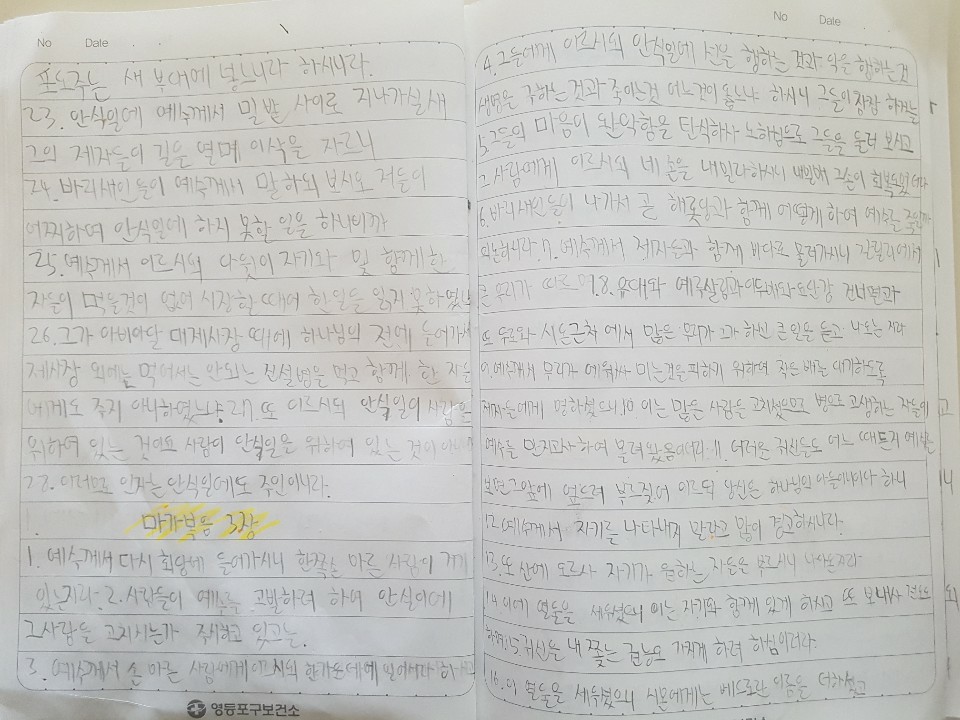 No Date
포도주는 새 부대에 넣느니라 하시니라.
23. 안식일에 예수께서 밀밭 사이로 지나가실새
그의 제자들이 길을 열며 이삭을 자르니
24. 바리새인들이 예수께서 말하되 보시오 저들이
어찌하여 안식일에 하지 못할 일을 하나이까
25. 예수께서 이르시되 다윗이 자기와 및 함께한
자들이 먹을것이 없어 시장할 때에 한일을 읽지 못하였느
26. 그가 아비아달 대제사장 때에 하나님의 전에 들어가서
제사장 외에는 먹어서는 안되는 진설병을 먹고 함께 한 자들
에게도 주지 아니하였느냐 27. 또 이르시되 안식일이 사람을
위하여 있는 것이요 사람이 안식일을 위하여 있는 것이 아니
이러므로 인자는 안식일에도 주인이니라.
마가복음 3장
1. 예수께서 다시 회당에 들어가시니 한쪽손 마른 사람이 거기
있는지라. 2. 사람들이 예수를 고발하려 하여 안식일에
그사람을 고치시는가 주시하고 있거늘.
3. 예수께서 손 마른 사람에게 이르시되 한가운데에 일어서라 하시
영등포구보건소
No Date
4. 그들에게 이르시되 안식일에 선을 행하는 것과 악을 행하는것
생명을 구하는 것과 죽이는것 어느것이 옳으냐 하시니 그들이 잠잠 하거늘
5. 그들의 마음이 완악함을 탄식하사 노하심으로 그들을 둘러 보시고
그 사람에게 이르시되 네 손을 내밀라하시니 내밀매 그손이 회복되었더라
6. 바리새인들이 나가서 곧 헤롯당과 함께 어떻게 하여 예수를 죽일까
의논하니라. 7. 예수께서 제자들과 함께 바다로 물러가시니 갈릴리에서
큰 무리가 따르며. 8. 유대와 예루살렘과 이두매와 요단강 건너편과
또 두로와 시돈근처 에서 많은 무리가 그가 하신 큰일을 듣고 나오는 지라
9. 예수께서 무리가 에워싸 미는것을 피하기 위하여 작은 배를 대기하도록
제자들에게 명하셨으니 10 이는 많은 사람을 고치셨으므로 병으로 고생하는 자들이
예수를 만지고자 하여 몰려왔음이더라. 11. 더러운 귀신들도 어느 때든지 예수를
보면 그앞에 엎드려 부르짖어 이르되 당신은 하나님의 아들이니이다 하니
12. 예수께서 자기를 나타내지 말라고 많이 경고하시니라.
13. 또 산에 오르사 자기가 원하는 자들을 부르시니 나아온지라
14. 이에 열둘을 세우셨으니 이는 자기와 함께 있게 하시고 또 보내사 전도도
하며. 15. 귀신을 내 쫓는 권능도 가지게 하려 하심이러라.
16. 이 열둘을 세우셨으니 시몬에게는 베드로란 이름을 더하셨고